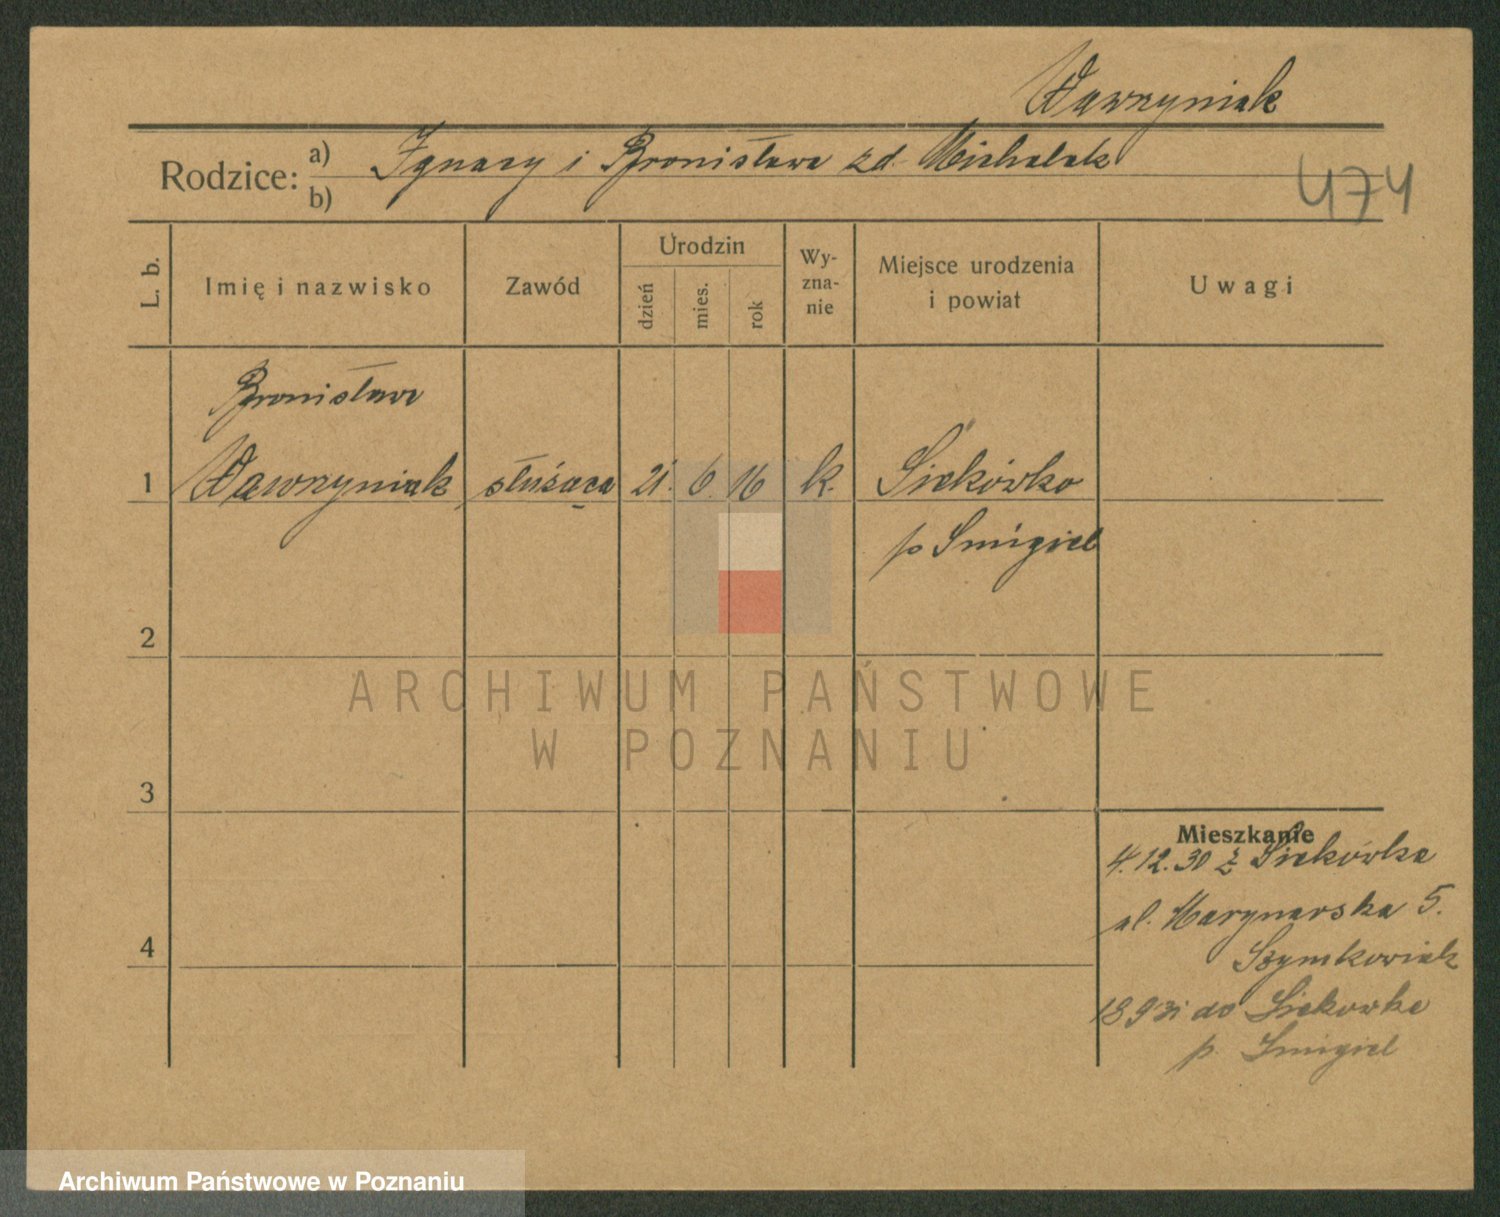 Wawrzyniak
Rodzice: a) Ignacy i Bronisława zd. Michalak
b)
474
L. b. Imię i nazwisko Zawód Urodzin dzień mies. rok Wy-zna-nie Miejsce urodzenia i powiat Uwagi
Bronisława
1 Wawrzyniak, służąca 21. 6. 16 k. Siekówko
p Śmigiel
2
ARCHIWUM PAŃSTWOWE
W POZNANIU
3
Mieszkanie
4.12.30 z Siekówka
ul. Marynarska 5.
4
Szymkowiak
18 9 31 do Siekowka
p. Śmigiel
Archiwum Państwowe w Poznaniu